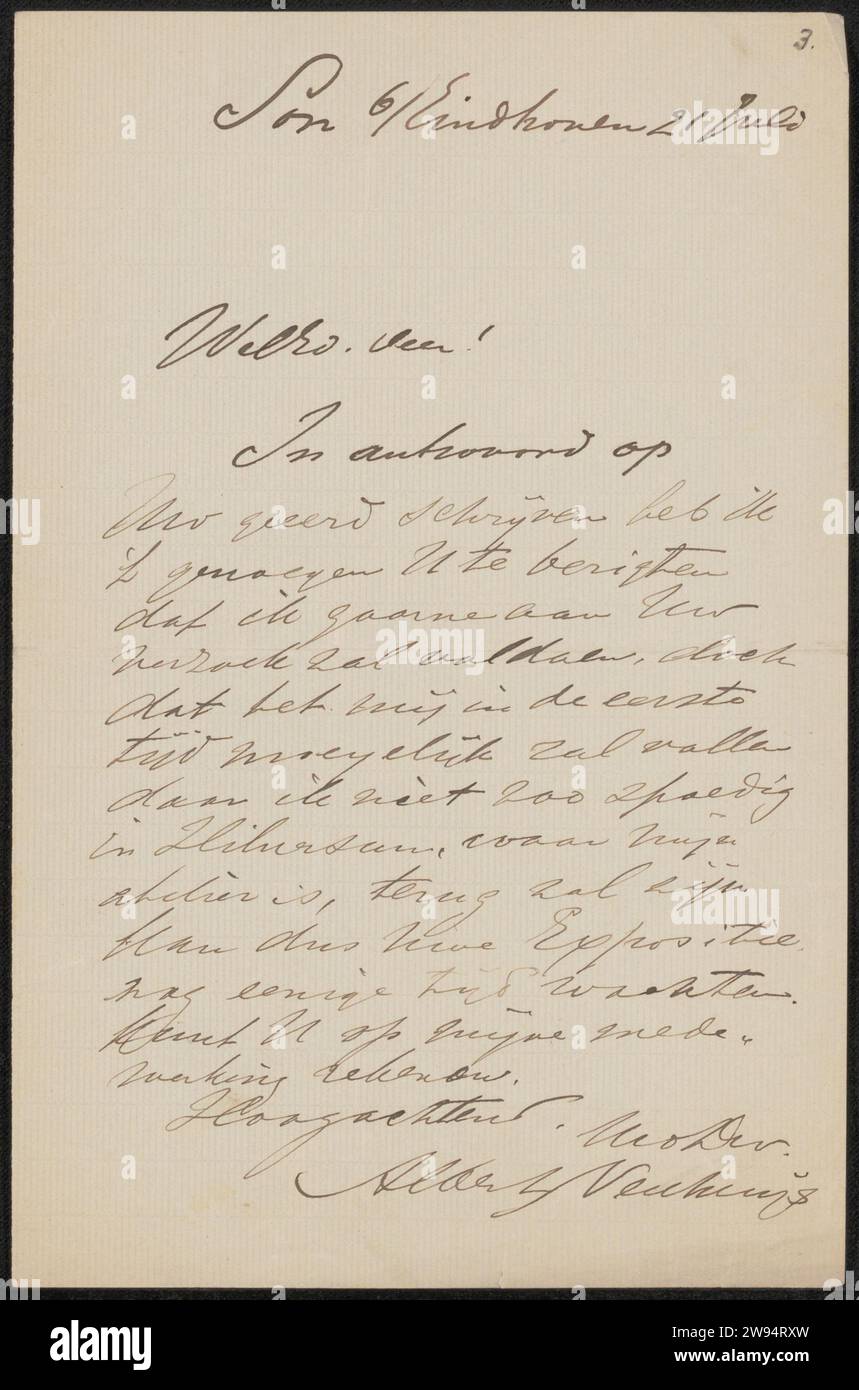 3.
Son b/ Eindhoven 21 Juli
WelEd. Heer!
In antwoord op
Uw geeerd schrijven heb ik
't genoegen U te berigten
dat ik gaarne aan Uw
verzoek zal voldoen, doch
dat het mij in de eerste
tijd moeyelijk zal vallen
daar ik niet zoo spoedig
in Hilversum, waar mijn
atelier is, terug zal zijn
Kan dus Uwe Expositie
nog eenige tijd wachten.
Kunt U op mijne mede„
werking rekenen.
Hoogachtend.
Uw Dw.
Albert Neuhuijs
a
alamy
Image ID: 2W94RXW
www.alamy.com